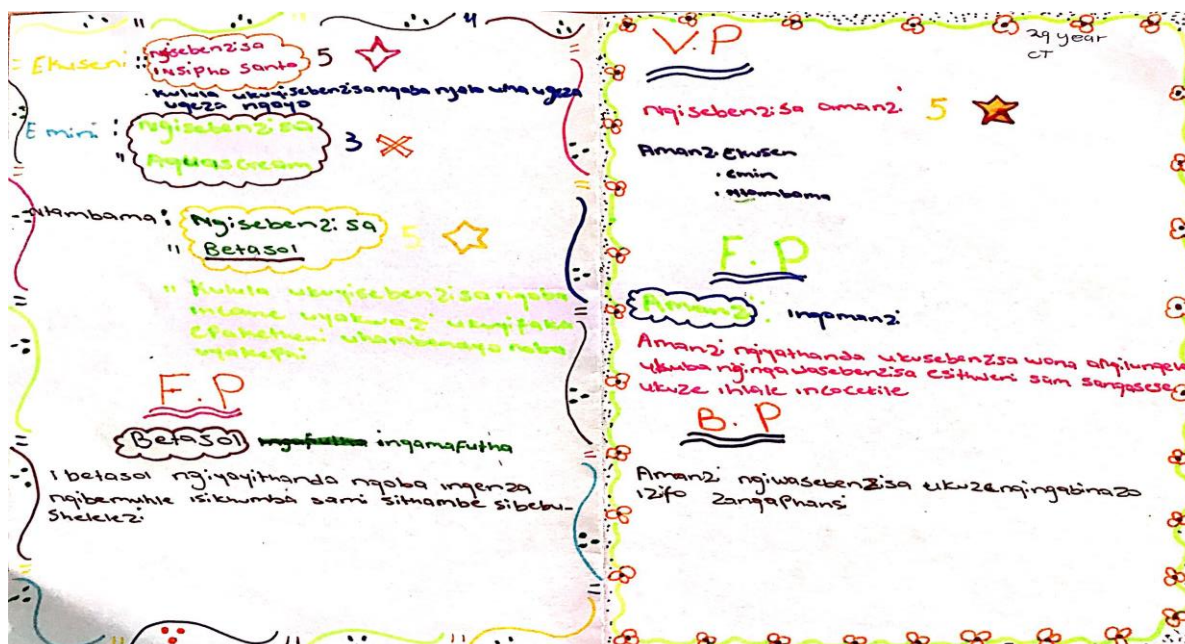 4
Ekuseni :: Ngisebenzisa 5
insipho Santo
. Kulula ukuyisebenzisa ngoba njalo uma ugeza
ugeza ngayo
Emini :: Ngisebenzisa 3
Aquascream
Ntambama :: Ngisebenzisa 5
Betasol
" Kulula ukuyisebenzisa ngoba
incane uyakwazi ukuyifaka
ephaketheni uhambenayo noba
uyakephi
F.P
Betasol ingamafutha
I betasol ngiyayithanda ngoba ingenza
ngibemuhle isikhumba sami sithambe sibebu-
shelelezi
V.P
29 year
CT
Ngisebenzisa amanzi 5
Amanzi Ekusen
. emin
. ntambama
F.P
Amanzi : ingamanzi
Amanzi ngiyathanda ukusebenzisa wona angilungela
ukuba ngingawasebenzisa esithweni sam sangasese
ukuze ihlale incocekile
B.P
Amanzi ngiwasebenzisa ukuzengingabinazo
izifo zangaphansi